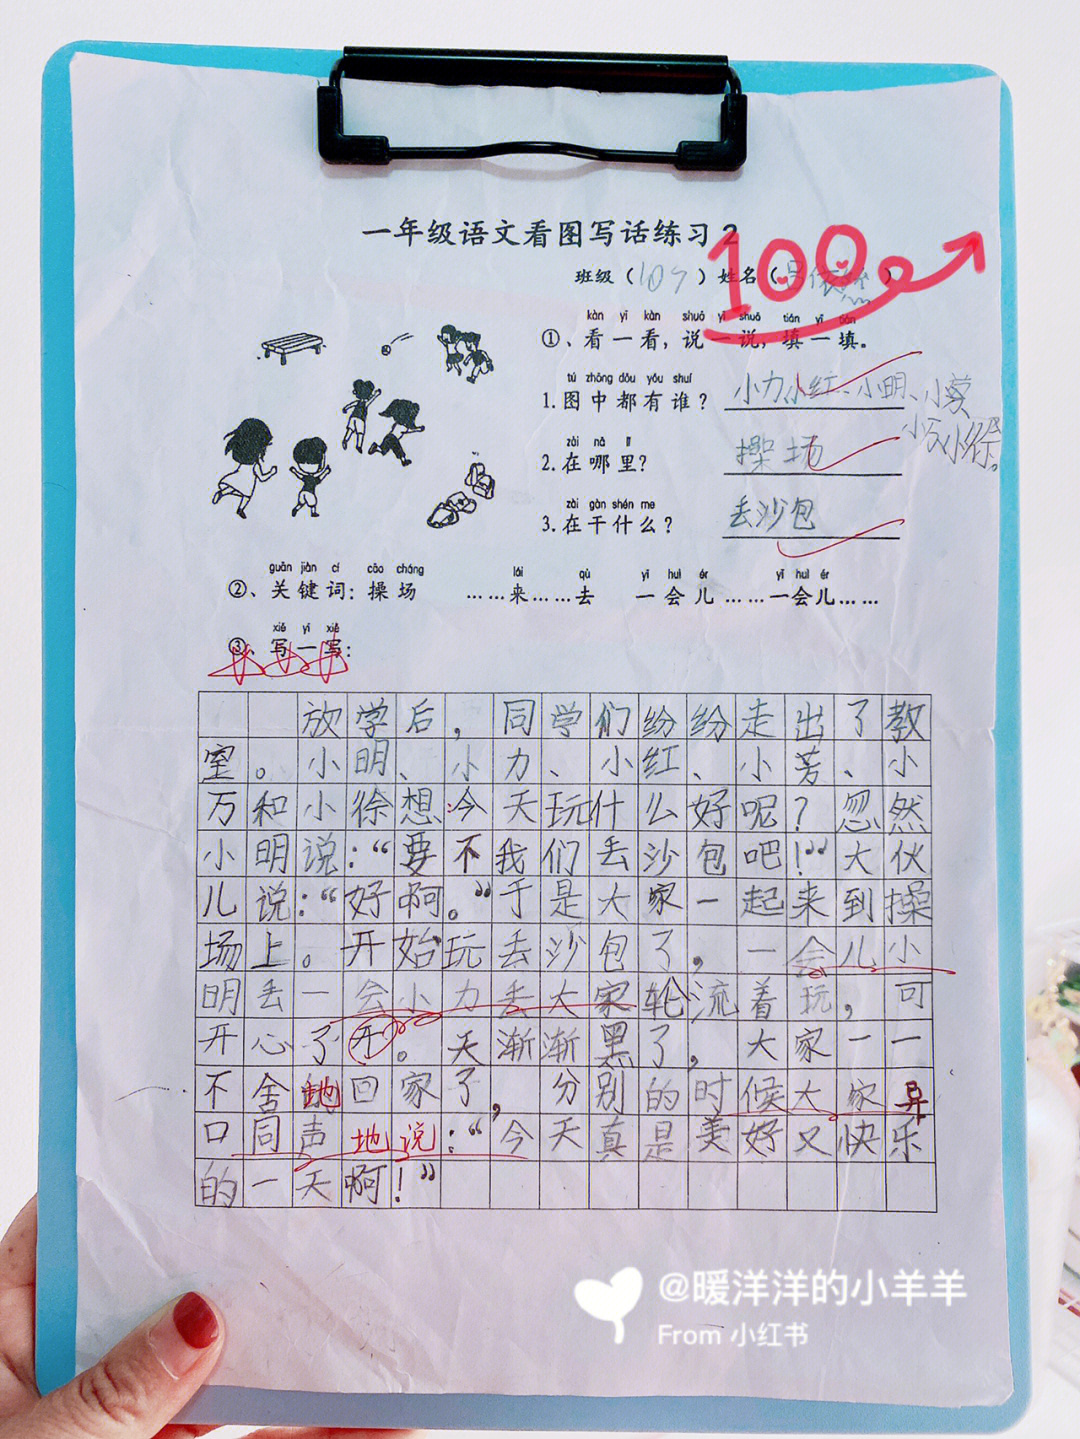 一年级语文看图写话练习2
100
班级（109）姓名（
kàn yī kàn shuō yī shuō tián yī tián
①、看一看，说一说，填一填。
tú zhōng dōu yǒu shuí
1.图中都有谁？ 小力小红、小明、小芳
小万小徐。
zài nǎ lǐ
2.在哪里？ 操场
zài gàn shén me
3.在干什么？ 丢沙包
guān jiàn cí cāo chǎng lái qù yī huì ér yī huì ér
②、关键词：操场 ……来……去 一会儿……一会儿……
xiě yī xiě
③、写一写：
放学后，同学们纷纷走出了教
室。小明、小力、小红、小芳、小
万和小徐想:今天玩什么好呢？忽然
小明说：“要不我们丢沙包吧！”大伙
儿说：“好啊。”于是大家一起来到操
场上。开始玩丢沙包了，一会儿小
明丢一会小力丢大家轮流着玩，可
开心了开。天渐渐黑了，大家一一
不舍地回家了，分别的时候大家异
口同声地说：“今天真是美好又快乐
的一天啊！”
@暖洋洋的小羊羊
From 小红书